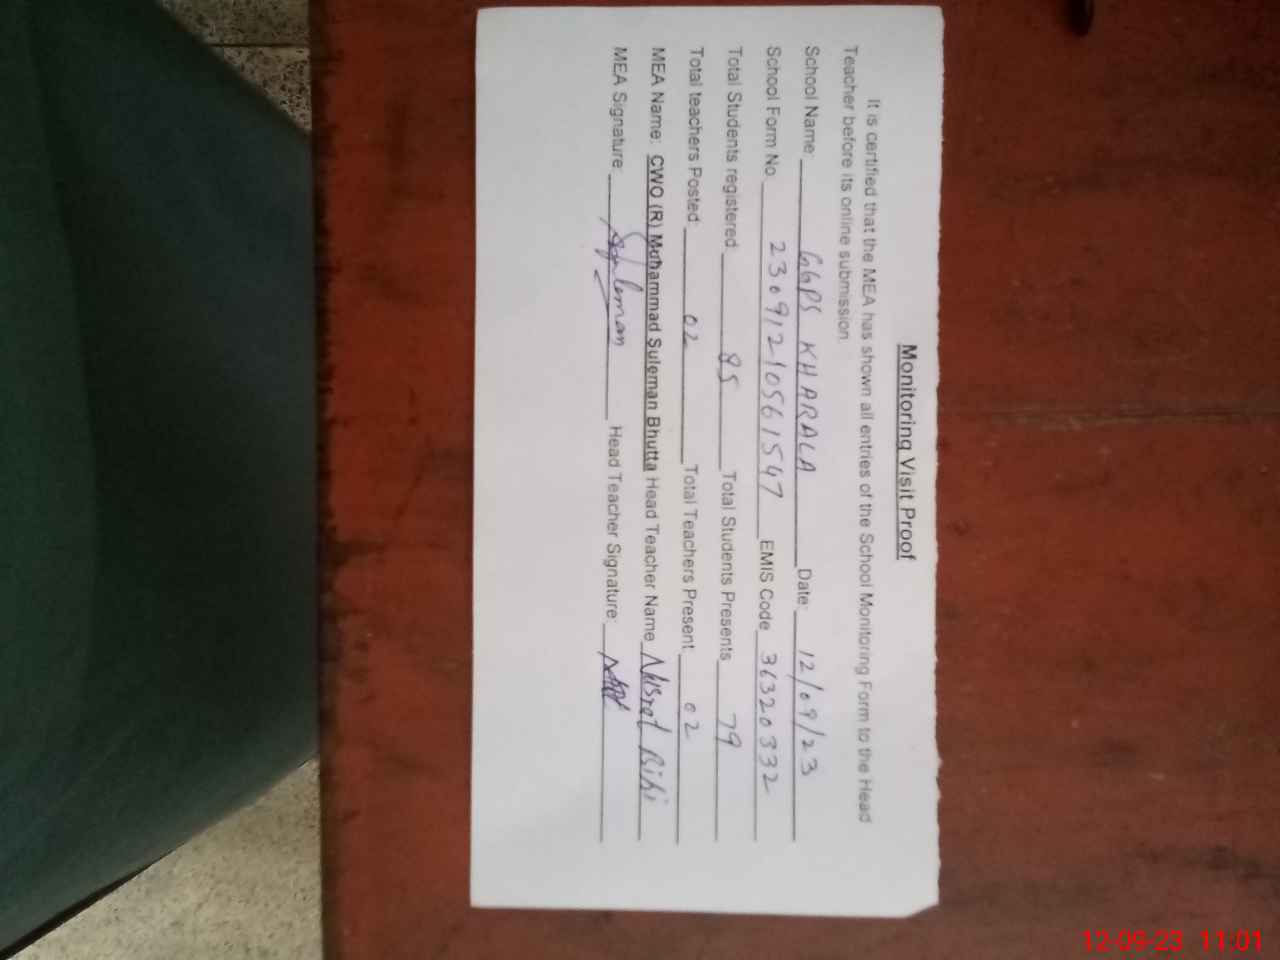 Monitoring Visit Proof
It is certified that the MEA has shown all entries of the School Monitoring Form to the Head
Teacher before its online submission.
School Name: GGPS KHARALA Date: 12/09/23
School Form No 23091210561547 EMIS Code 36320332
Total Students registered: 85 Total Students Presents 79
Total teachers Posted: 02 Total Teachers Present 02
MEA Name: CWO (R) Muhammad Suleman Bhutta Head Teacher Name Nusrat Bibi
MEA Signature: Suleman Head Teacher Signature:
12-09-23 11:01